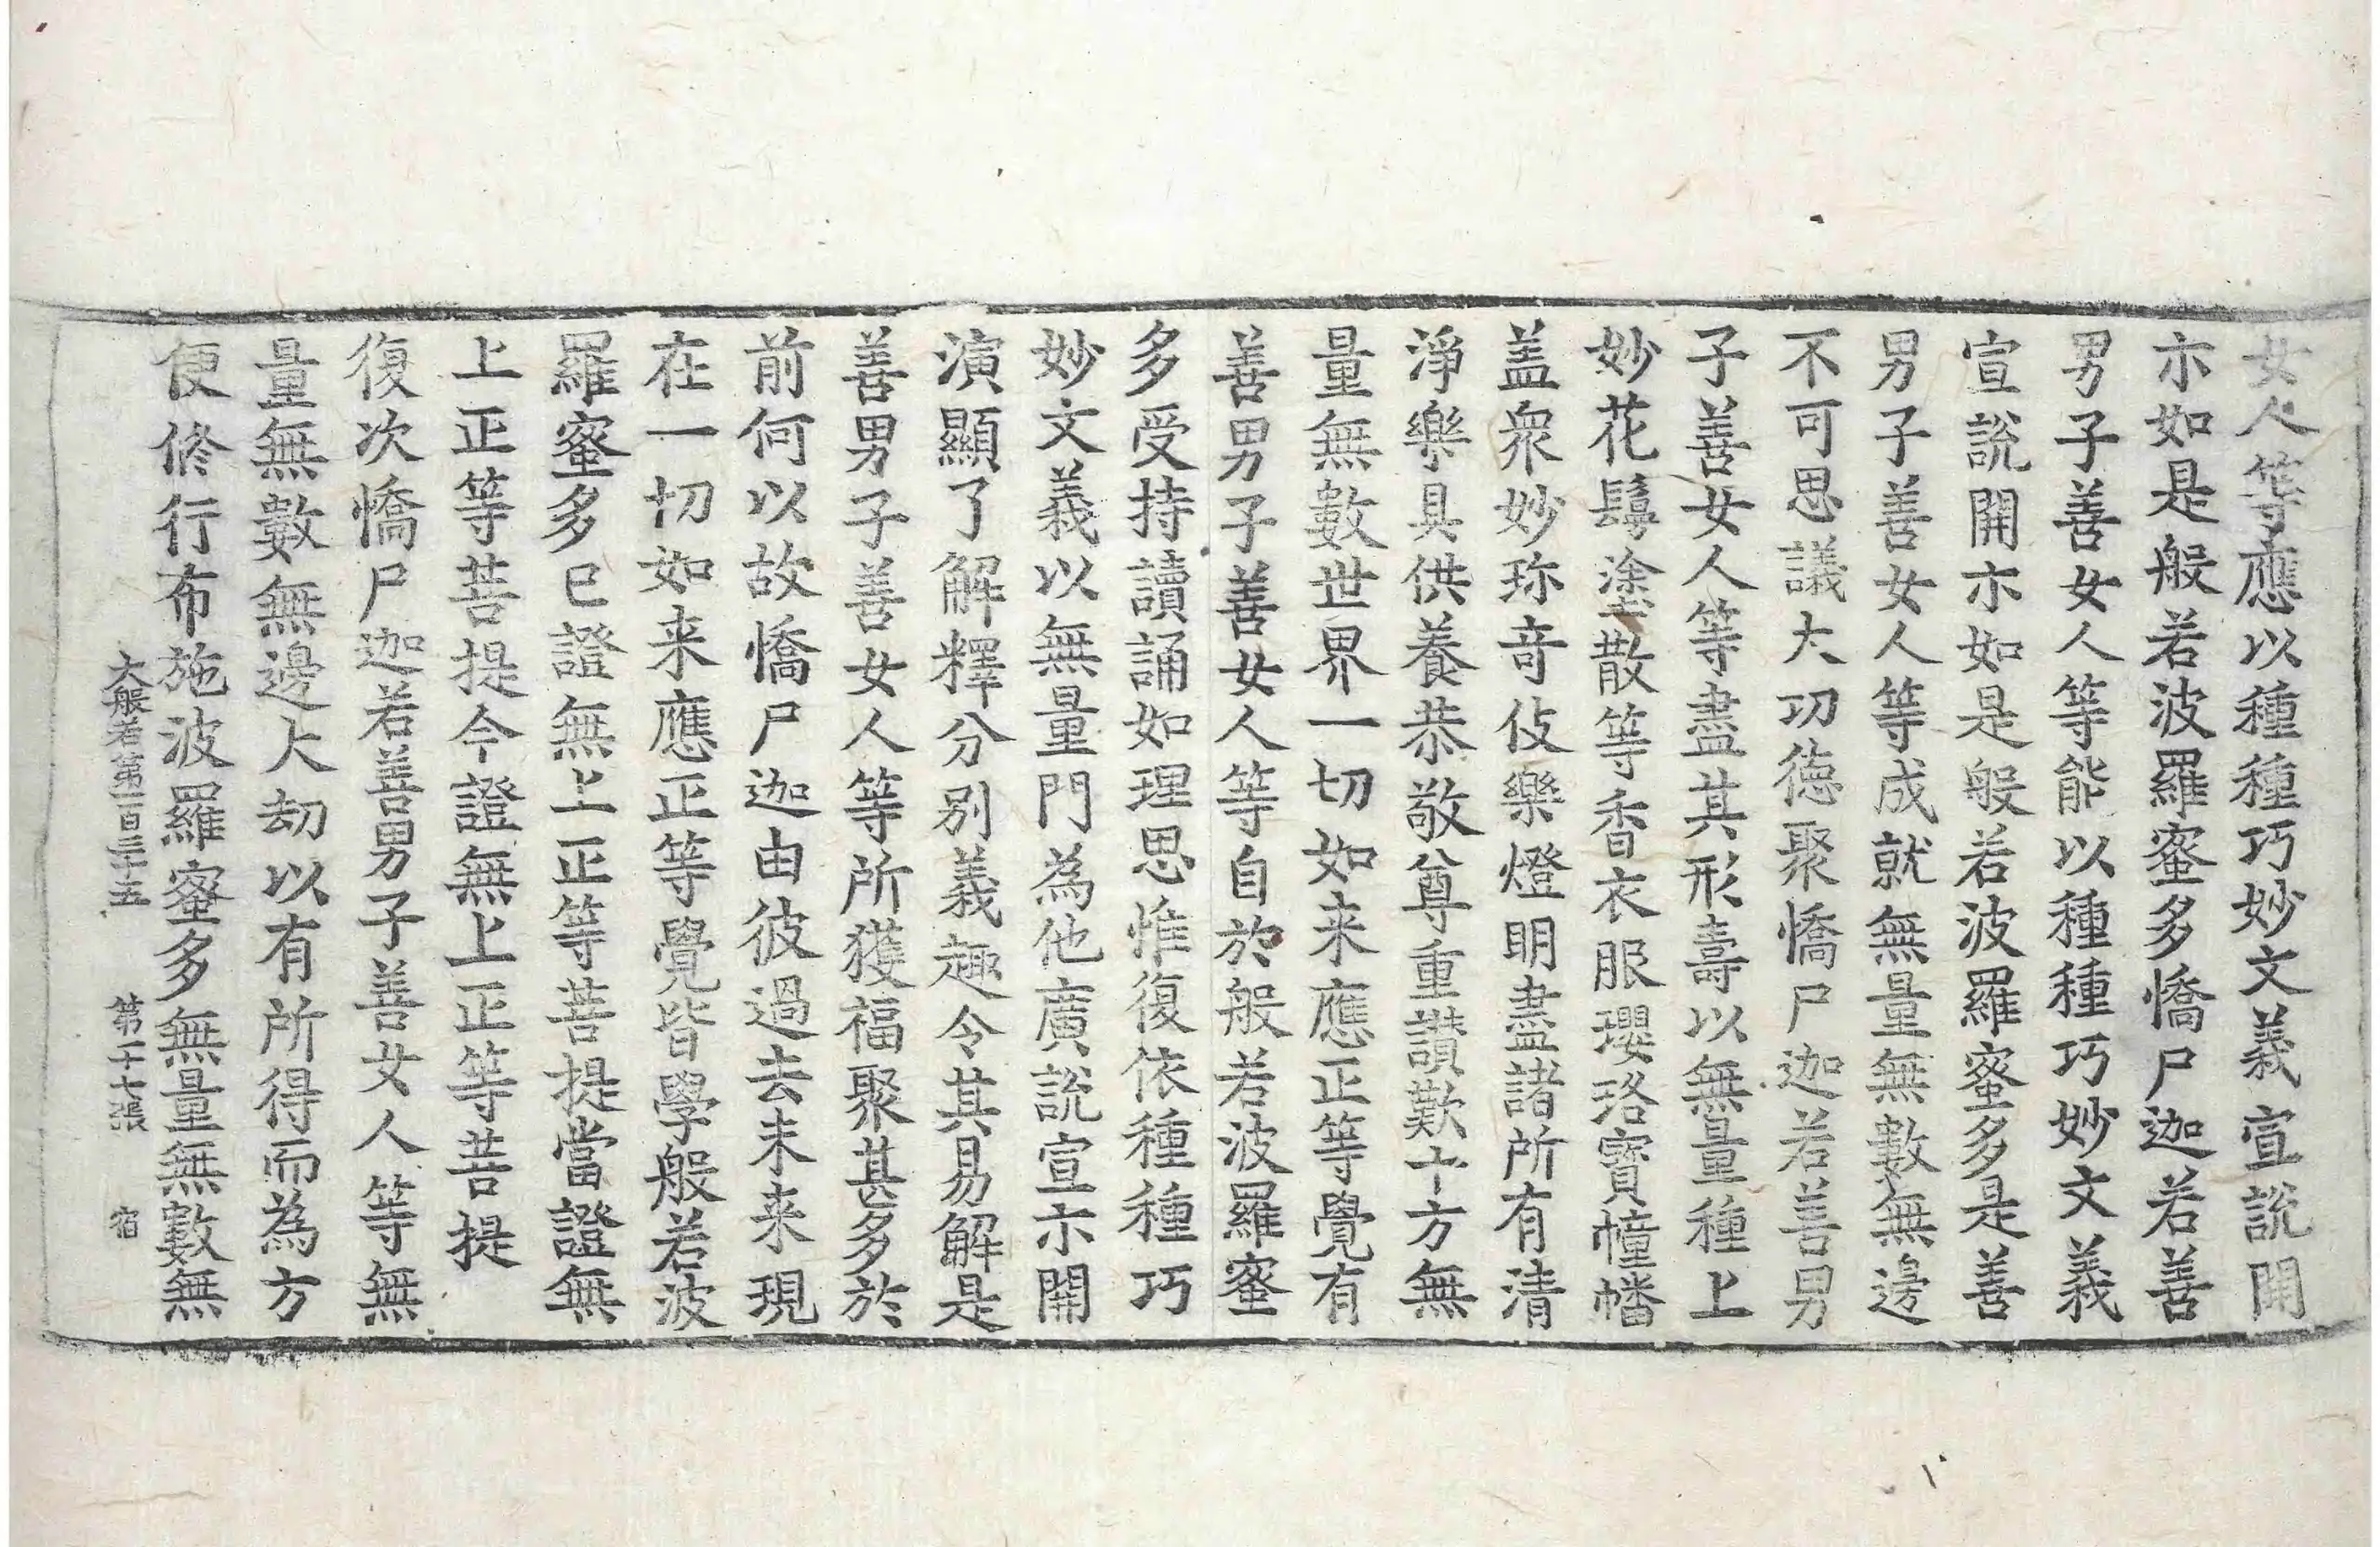 女人等應以種種巧妙文義宣說開
亦如是般若波羅蜜多憍尸迦若善
男子善女人等能以種種巧妙文義
宣說開亦如是般若波羅蜜多是善
男子善女人等成就無量無數無邊
不可思議大功德聚憍尸迦若善男
子善女人等盡其形壽以無量種上
妙花鬘塗散等香衣服瓔珞寶幢幡
盖衆妙珎竒伎樂燈明盡諸所有清
淨樂具供養恭敬尊重讚歎十方無
量無數世界一切如来應正等覺有
善男子善女人等自於般若波羅蜜
多受持讀誦如理思惟復依種種巧
妙文義以無量門為他廣說宣亦開
演顯了解釋分別義趣令其易解是
善男子善女人等所獲福聚甚多於
前何以故憍尸迦由彼過去未来現
在一切如来應正等覺皆學般若波
羅蜜多已證無上正等菩提當證無
上正等菩提今證無上正等菩提
復次憍尸迦若善男子善女人等無
量無數無邊大劫以有所得而為方
便修行布施波羅蜜多無量無數無
大般若第一百三十五 第二十七張 宿